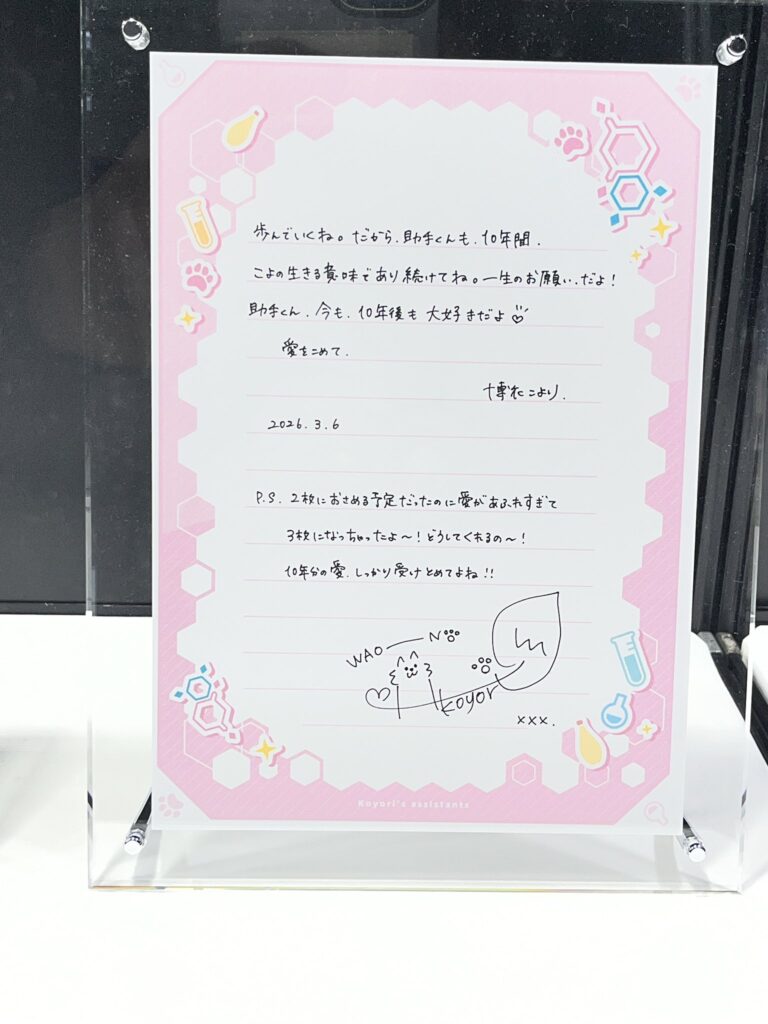 歩んでいくね。だから、助手くんも、10年間、
こよの生きる意味であり続けてね。一生のお願い、だよ！
助手くん、今も、10年後も 大好きだよ♡
愛をこめて、
博衣こより、
2026.3.6
P.S. 2枚におさめる予定だったのに愛があふれすぎて
3枚になっちゃったよ〜！どうしてくれるの〜！
10年分の愛、しっかり受けとめてよね!!
WAO――N
Koyori
×××.
Koyori's assistants